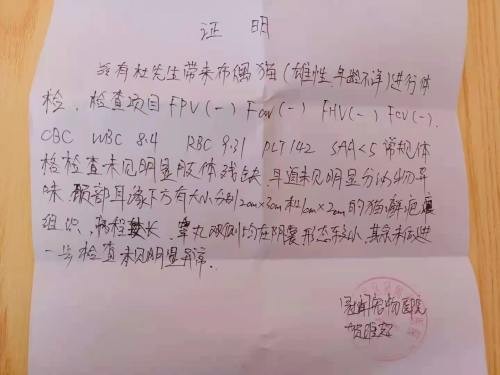 证明
兹有杜先生带来布偶猫(雄性,年龄不详)进行体
检,检查项目FPV(-) Fcov(-) FHV(-) Fcv(-).
CBC WBC 8.4 RBC 9.31 PLT 142 SAA<5 常规体
格检查未见明显肢体残缺,耳道未见明显分泌物异
味,颈部耳缘下方有大小分别2cm×3cm和1cm×2cm的猫癣疤
组织,病程较长,睾丸双侧均在阴囊形态较小,其余未做进
一步检查未见明显异常.
宠物医院